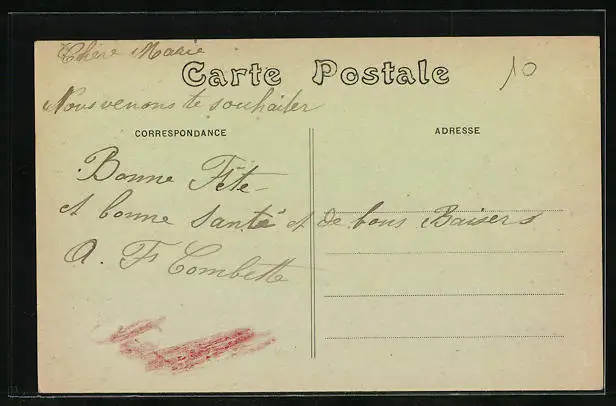 Chère Marie
Carte Postale
10
Nous venons te souhaiter
CORRESPONDANCE
ADRESSE
Bonne Fête
et bonne Santé et de bons Baisers
A. F Combette